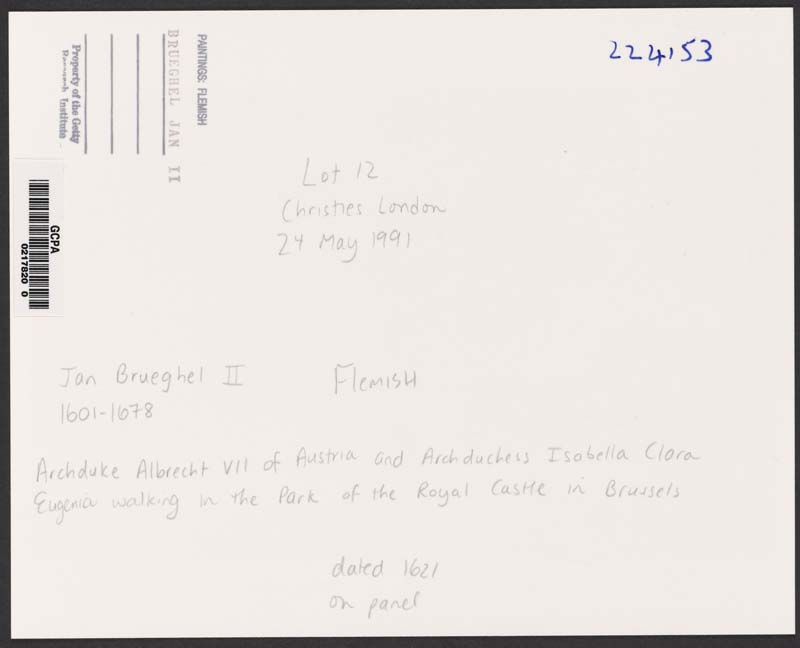 PAINTINGS: FLEMISH
BRUEGHEL JAN II
Property of the Getty
Research Institute
224153
GCPA
0217820 0
Lot 12
Christies London
24 May 1991
Jan Brueghel II
1601-1678
Flemish
Archduke Albrecht VII of Austria and Archduchess Isabella Clara
Eugenia walking in the Park of the Royal Castle in Brussels
dated 1621
on panel